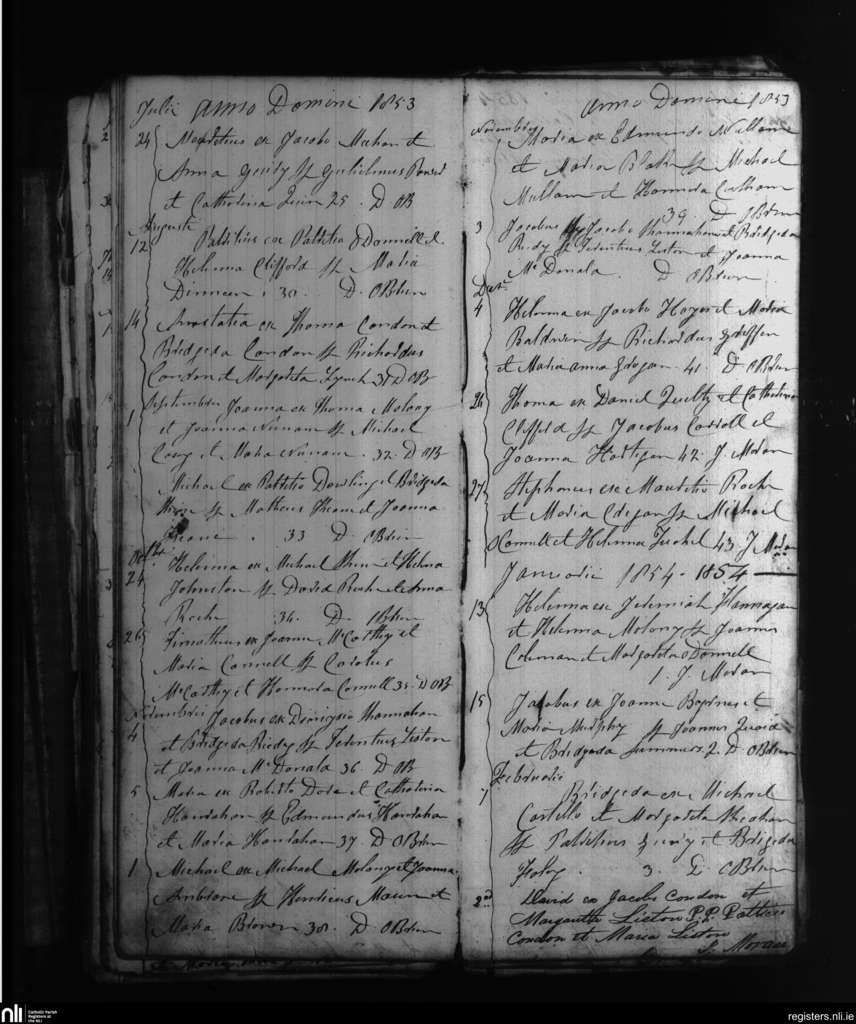 Julii Anno Domini 1853
24 Mauritius ex Jacobo Mechan et
Anna Geidy Sp Gulielmus Power
et Catherina Quin 25. D OB
Augusti
12 Patritius ex Patritio O Donnell et
Helenna Clifford Sp Maria
Dinneen. 30. D. OBrien
14 Anastatia ex Thoma Condon et
Bridgeda Condon Sp Richardus
Condon et Margarita Lynch 31 D OB
Septembris Joanna ex Thoma Molony
1 et Joanna Nunam Sp Michael
Casey et Maria Nunam. 32. D OB
Michael ex Patritio Dowling et Bridgeda
Sp Matheus et Joanna
33 D. OBrien
Octbr
Helenna ex Michael Shine et Helena
24 Johnston Sp David Roche et Anna
Roche 34. D. OBrien
26 Timotheus ex Joanne McCarthy et
Maria Connell Sp Carolus
McCarthy et Honnora Connell 35. D OB
Novembris Jacobus ex Dionysio Shannahan
4 et Bridgeda Reidy Sp Terentius Liston
et Joanna McDonald 36. D OB
5 Maria ex Roberto Dore et Catherina
Hanrahan Sp Edmundus Hanrahan
et Maria Hanrahan 37. D OBrien
1 Michael ex Michael Molony et Joanna
Ambrose Sp Henricus et
Maria Brown 38. D. OBrien
Anno Domini 1853
Novembris
Maria ex Edmundo Mullane
et Maria Blake Sp Michael
Mullane et Honnora Culhane
39. D OBrien
3 Jacobus ex Jacobo Shannahan et Bridgeda
Reidy Sp Terentius Liston et Joanna
McDonald. D OBrien
Decr
4 Helenna ex Jacobo Hayes et Maria
Baldwin Sp Richardus Griffin
et Maria Anna Grogan. 41. D OBrien
26 Thoma ex Daniel Quilty et Catherina
Clifford Sp Jacobus Carroll et
Joanna Hartigan 42. J. Moran
27 Stephanus ex Mauritio Roche
et Maria Sp Michael
OConnell et Helenna 43 J Moran
Januarii 1854. 1854
13 Helenna ex Jeremiah Flannagan
et Helenna Molony Sp Joannes
Coleman et Margarita O Donnell
1. J. Moran
15 Jacobus ex Joanne et
Maria Murphy Sp Joannes Quaid
et Bridgeda Summers. 2. D OBrien
Februarii
7 Bridgeda ex Michael
Costello et Margarita Sheahan
Sp Patritius et Bridgeda
Foley. 3. D. OBrien
2nd David ex Jacobo Condon et
Margaritta Liston P.P. Patticus
Condon et Maria Liston
J. Moran
nli
Catholic Parish
Registers at
the NLI
registers.nli.ie